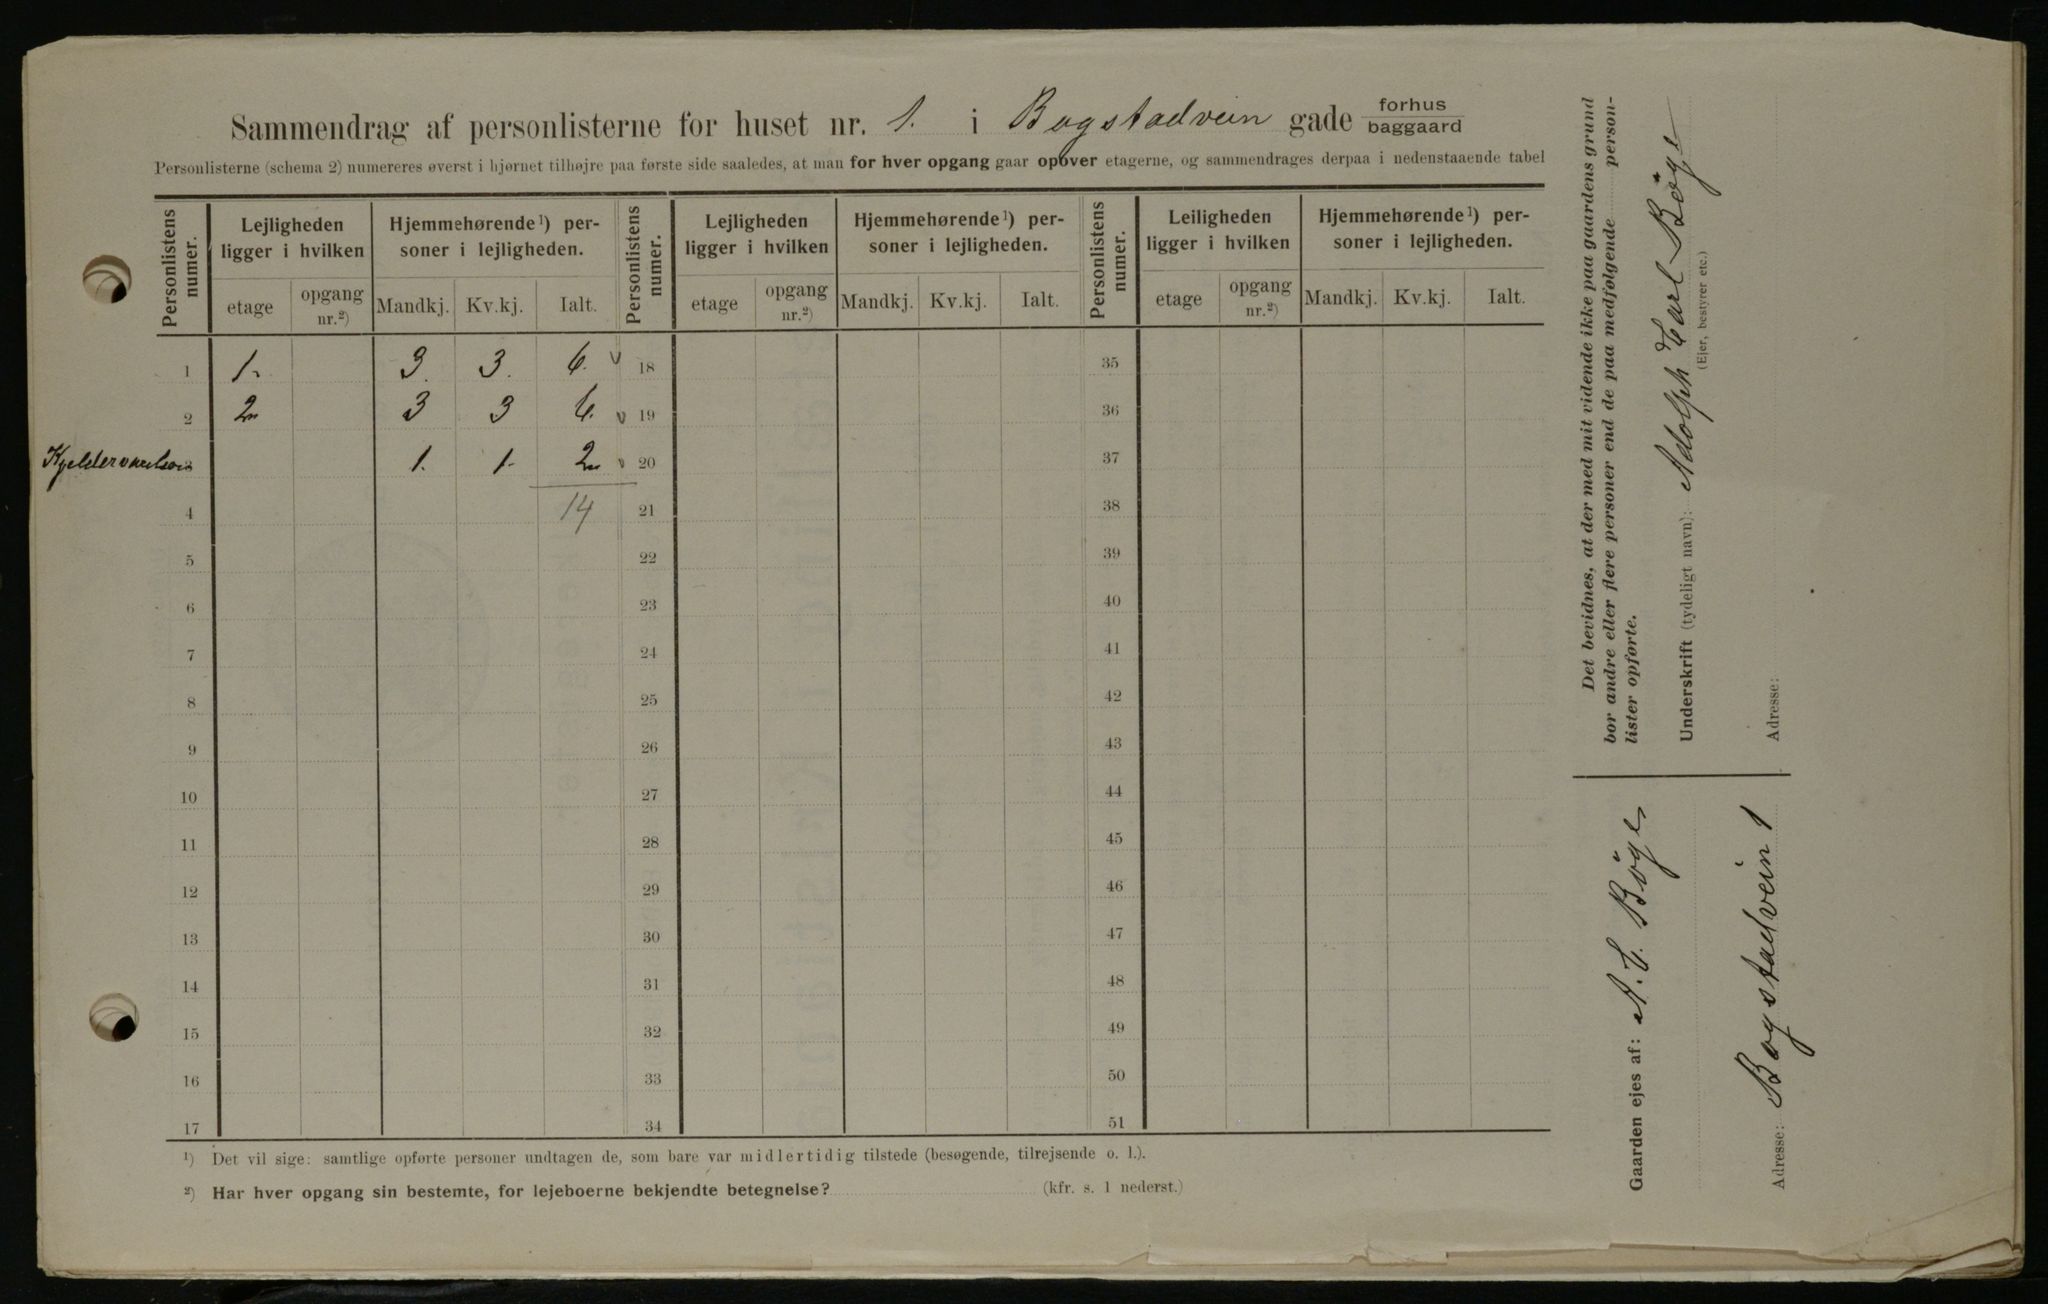 Sammendrag af personlisterne for huset nr. 1. i Bogstadvein gade forhus baggaard
Personlisterne (schema 2) numereres øverst i hjørnet tilhøjre paa første side saaledes, at man for hver opgang gaar opover etagerne, og sammendrages derpaa i nedenstaaende tabel
Personlistens numer. Lejligheden ligger i hvilken Hjemmehørende ¹) personer i lejligheden. Personlistens numer. Lejligheden ligger i hvilken Hjemmehørende ¹) personer i lejligheden. Personlistens numer. Leiligheden ligger i hvilken Hjemmehørende ¹) personer i lejligheden.
etage opgang nr.²) Mandkj. Kv.kj. Ialt. etage opgang nr.²) Mandkj. Kv.kj. Ialt. etage opgang nr.²) Mandkj. Kv.kj. Ialt.
1 1. 3. 3. 6. 18 35
2 2 3 3 6. 19 36
3 1. 1. 2 20 37
4 14 21 38
5 22 39
6 23 40
7 24 41
8 25 42
9 26 43
10 27 44
11 28 45
12 29 46
13 30 47
14 31 48
15 32 49
16 33 50
17 34 51
¹) Det vil sige: samtlige opførte personer undtagen de, som bare var midlertidig tilstede (besøgende, tilrejsende o. l.).
²) Har hver opgang sin bestemte, for lejeboerne bekjendte betegnelse? (kfr. s. 1 nederst.)
Det bevidnes, at der med mit vidende ikke paa gaardens grund
bor andre eller flere personer end de paa medfølgende person-
lister opførte.
Underskrift (tydeligt navn): Adolph Carl Böge
(Ejer, bestyrer etc.)
Adresse:
Gaarden ejes af: A. C. Böge
Adresse: Bogstadvein 1